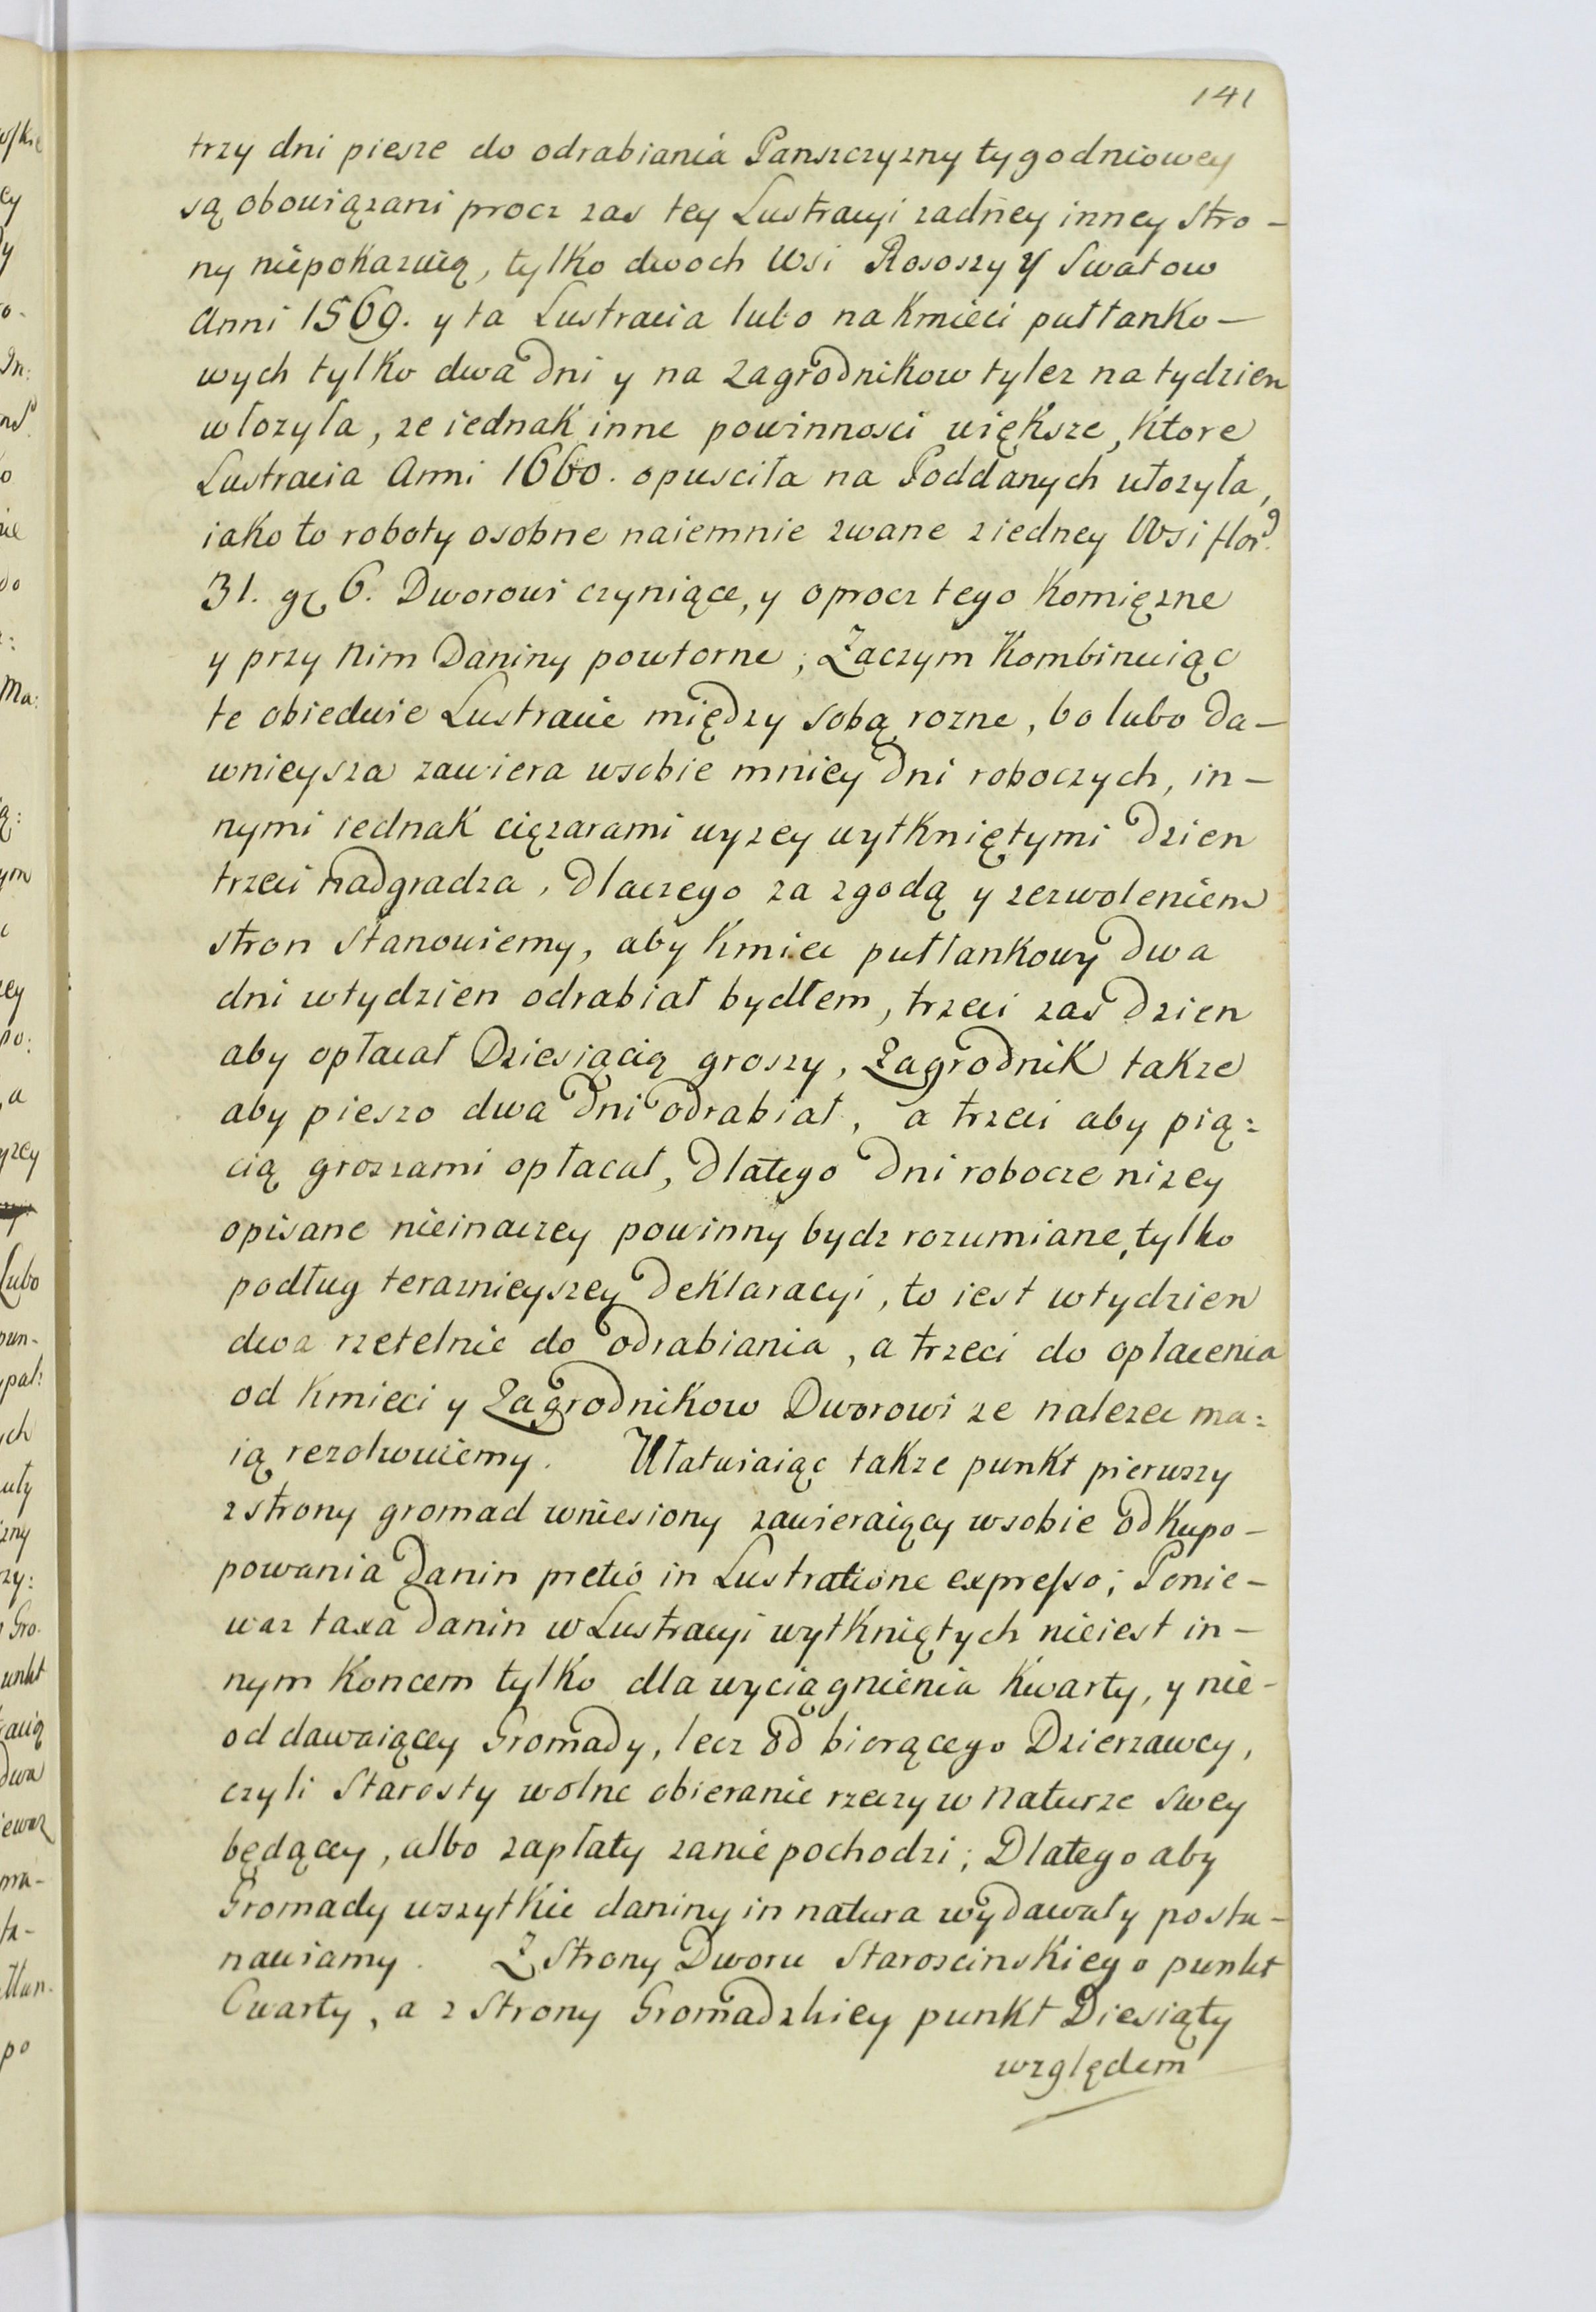 141
trzy dni piesze do odrabiania Panszczyzny tygodniowey
są obowiązani procz zas tey Lustracyi zadney inney stro-
ny niepokazuią, tylko dwoch Wsi Rososzy y Swatow
Anni 1569. y ta Lustracia lubo na Kmieci pułłanko-
wych tylko dwa dni y na Zagrodnikow tylez na tydzien
włozyła, ze iednak inne powinnosci większe, Ktore
Lustracia Anni 1660. opusciła na Poddanych ułozyła,
iako to roboty osobne naiemnie zwane z iedney Wsi flor.
31. gr 6. Dworowi czyniące, y oprocz tego Komięzne
y przy nim Daniny powtorne; Zaczym Kombinuiąc
te obiedwie Lustracie między sobą rozne, bo lubo da-
wnieysza zawiera wsobie mniey dni roboczych, in-
nymi iednak cięzarami wyzey wytkniętymi dzien
trzeci nadgradza, dlaczego za zgodą y zezwoleniem
stron stanowiemy, aby Kmiec pułłankowy dwa
dni wtydzien odrabiał bydłem, trzeci zas dzien
aby opłacał Dziesiącią groszy, Zagrodnik takze
aby pieszo dwa dni odrabiał, a trzeci aby pią:
cią groszami opłacał, dlatego dni robocze nizey
opisane nieinaczey powinny bydz rozumiane, tylko
podług teraznieyszey deklaracyi, to iest wtydzien
dwa rzetelnie do odrabiania, a trzeci do opłacenia
od Kmieci y Zagrodnikow Dworowi ze nalezec ma:
ią rezolwuiemy. Ułatwiaiąc takze punkt pierwszy
z strony gromad wniesiony zawieraiący wsobie odkupo-
powania danin pretio in Lustratione expresso; Ponie-
waz taxa danin w Lustracyi wytkniętych nieiest in-
nym Koncem tylko dla wyciągnienia Kwarty, y nie-
od dawaiącey Gromady, lecz od biorącego Dzierzawcy,
czyli Starosty wolne obieranie rzeczy w naturze swey
będącey, albo zapłaty zanie pochodzi; Dlatego aby
Gromady wszytkie daniny in natura wydawały posta-
nawiamy. Z Strony Dworu Staroscinskiego punkt
Cwarty, a z Strony Gromadzkiey punkt Diesiąty
względem